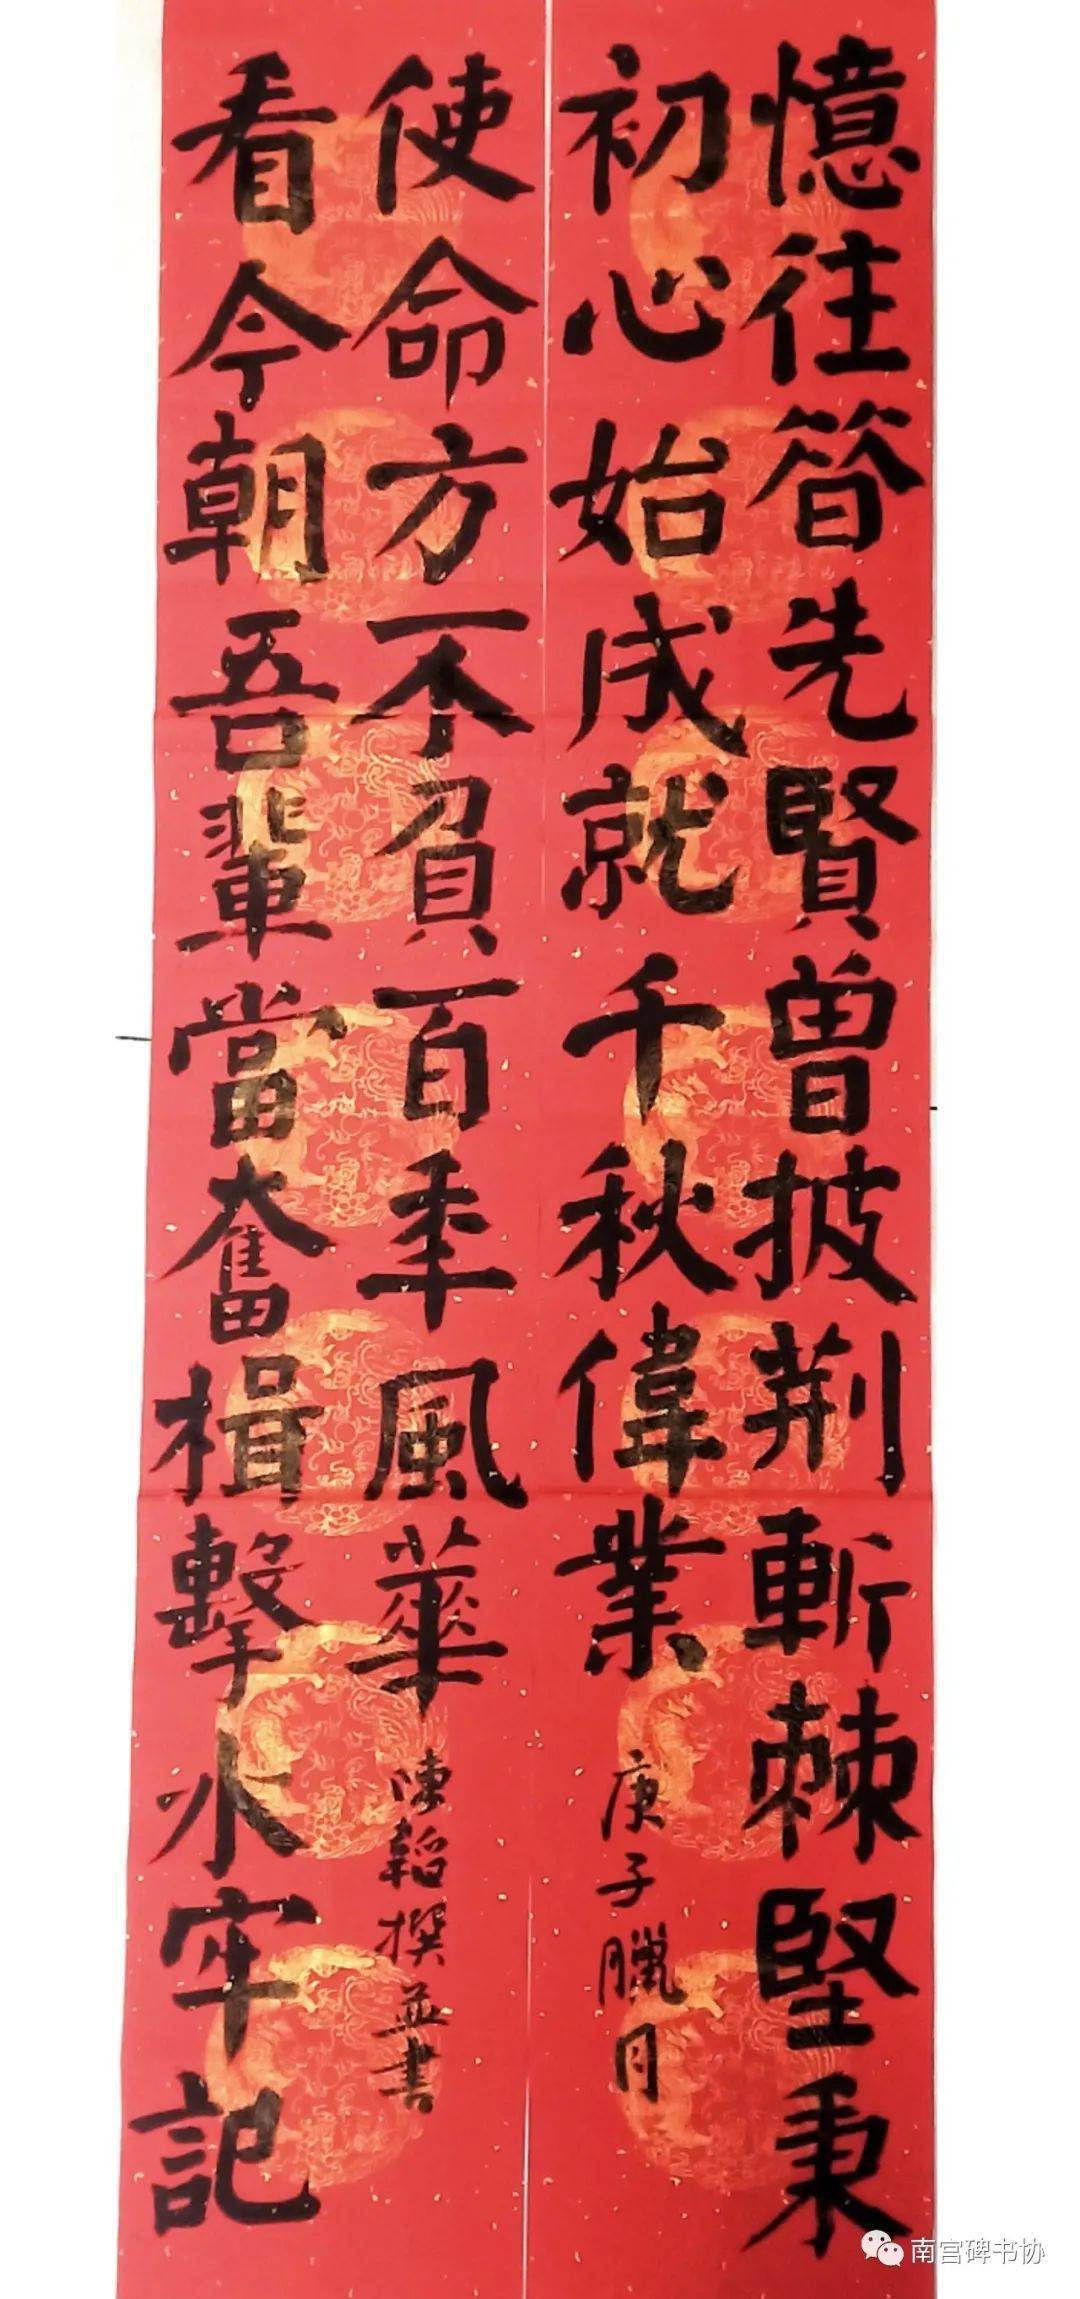 憶往昔先賢曾披荆斬棘堅秉
初心始成就千秋偉業
庚子臘月
看今朝吾輩當奮楫擊水牢記
使命方不負百年風華
陳韜撰並書
南宫碑书协